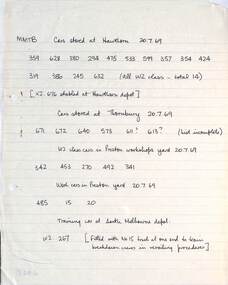 MMTB Cars stored at Hawthorn 20.7.69
359 628 380 234 475 533 599 357 354 424
319 386 245 632 (All W2 class - total 14)
[X2.676 stabled at Hawthorn depot]
Cars stored at Thornbury 20.7.69
671 672 640 573 611? 613? (List incomplete)
W2 class cars in Preston workshops yard 20.7.69
542 453 270 492 341
Work cars in Preston yard 20.7.69
485 15 20
Training car at South Melbourne depot.
W2 . 257 [Fitted with No 15 truck at one end to train
breakdown crews in rerailing procedures]